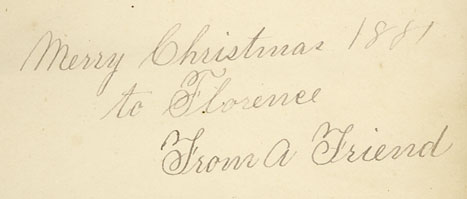 Merry Christmas 1881
to Florence
From A Friend